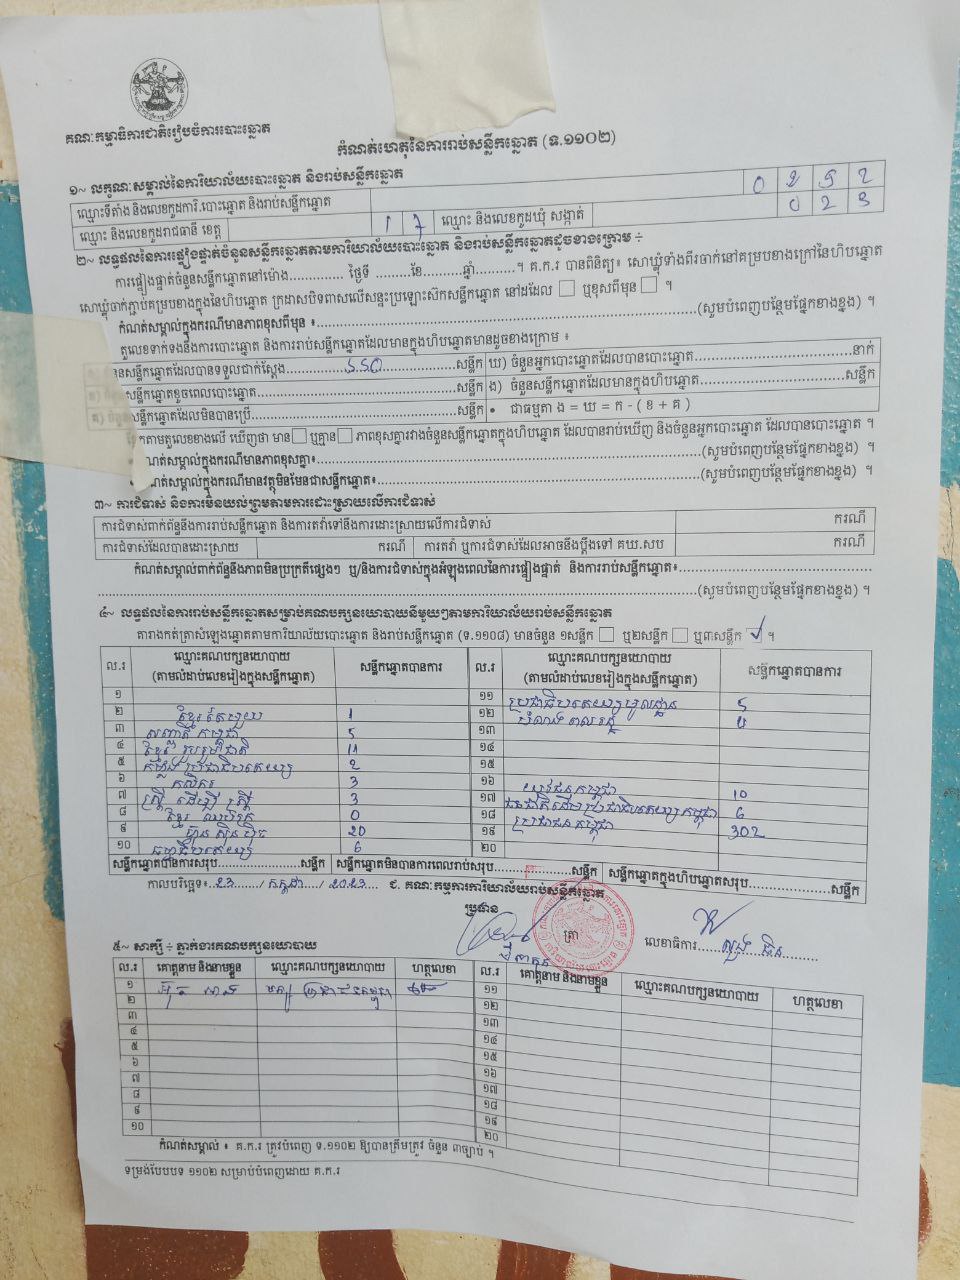 គណៈកម្មាធិការជាតិរៀបចំការបោះឆ្នោត
កំណត់ហេតុនៃការរាប់សន្លឹកឆ្នោត (ទ.១១០២)
១~ លក្ខណៈសម្គាល់នៃការិយាល័យបោះឆ្នោត និងរាប់សន្លឹកឆ្នោត
ឈ្មោះទីតាំង និងលេខកូដការិ.បោះឆ្នោត និងរាប់សន្លឹកឆ្នោត 0292
ឈ្មោះ និងលេខកូដរាជធានី ខេត្ត 17 ឈ្មោះ និងលេខកូដឃុំ សង្កាត់
២~ លទ្ធផលនៃការផ្ទៀងផ្ទាត់ចំនួនសន្លឹកឆ្នោតតាមការិយាល័យបោះឆ្នោត និងរាប់សន្លឹកឆ្នោតដូចខាងក្រោម ÷
ការផ្ទៀងផ្ទាត់ចំនួនសន្លឹកឆ្នោតនៅម៉ោង............... ថ្ងៃទី .........ខែ..........ឆ្នាំ..........។ គ.ក.រ បានពិនិត្យ៖ សោឃ្លុំទាំងពីរចាក់នៅគម្របខាងក្រៅនៃហិបឆ្នោត
សោឃ្លុំចាក់ភ្ជាប់គម្របខាងក្នុងនៃហិបឆ្នោត ក្រដាសបិទពាសលើសន្ទះប្រឡោះស៊កសន្លឹកឆ្នោត នៅដដែល ឬខុសពីមុន ។
កំណត់សម្គាល់ក្នុងករណីមានភាពខុសពីមុន ៖...............(សូមបំពេញបន្ថែមផ្នែកខាងខ្នង) ។
តួលេខទាក់ទងនឹងការបោះឆ្នោត និងការរាប់សន្លឹកឆ្នោតដែលមានក្នុងហិបឆ្នោតមានដូចខាងក្រោម ៖
នួនសន្លឹកឆ្នោតដែលបានទទួលជាក់ស្ដែង...............សន្លឹក ឃ) ចំនួនអ្នកបោះឆ្នោតដែលបានបោះឆ្នោត...............នាក់
សន្លឹកឆ្នោតខូចពេលបោះឆ្នោត...............សន្លឹក ង) ចំនួនសន្លឹកឆ្នោតដែលមានក្នុងហិបឆ្នោត...............សន្លឹក
សន្លឹកឆ្នោតដែលមិនបានប្រើ...............សន្លឹក • ជាធម្មតា ង = ឃ = ក - ( ខ + គ )
តាមតួលេខខាងលើ ឃើញថា មាន ឬគ្មាន ភាពខុសគ្នារវាងចំនួនសន្លឹកឆ្នោតក្នុងហិបឆ្នោត ដែលបានរាប់ឃើញ និងចំនួនអ្នកបោះឆ្នោត ដែលបានបោះឆ្នោត ។
កំណត់សម្គាល់ក្នុងករណីមានភាពខុសគ្នា៖...............(សូមបំពេញបន្ថែមផ្នែកខាងខ្នង) ។
កំណត់សម្គាល់ក្នុងករណីមានវត្ថុមិនមែនជាសន្លឹកឆ្នោត៖...............(សូមបំពេញបន្ថែមផ្នែកខាងខ្នង) ។
៣~ ការជំទាស់ និងការមិនយល់ព្រមតាមការដោះស្រាយលើការជំទាស់
ការជំទាស់ពាក់ព័ន្ធនឹងការរាប់សន្លឹកឆ្នោត និងការតវ៉ាទៅនឹងការដោះស្រាយលើការជំទាស់ ករណី
ការជំទាស់ដែលបានដោះស្រាយ ករណី ការតវ៉ា ឬការជំទាស់ដែលអាចនឹងប្ដឹងទៅ គឃ.សប ករណី
កំណត់សម្គាល់ពាក់ព័ន្ធនឹងភាពមិនប្រក្រតីផ្សេងៗ ឬ/និងការជំទាស់ក្នុងអំឡុងពេលនៃការផ្ទៀងផ្ទាត់ និងការរាប់សន្លឹកឆ្នោត៖...............
...............(សូមបំពេញបន្ថែមផ្នែកខាងខ្នង) ។
៤~ លទ្ធផលនៃការរាប់សន្លឹកឆ្នោតសម្រាប់គណបក្សនយោបាយនីមួយៗតាមការិយាល័យរាប់សន្លឹកឆ្នោត
តារាងកត់ត្រាសំឡេងឆ្នោតតាមការិយាល័យបោះឆ្នោត និងរាប់សន្លឹកឆ្នោត (ទ.១១០៨) មានចំនួន ១សន្លឹក ឬ២សន្លឹក ឬ៣សន្លឹក ✓ ។
ល.រ ឈ្មោះគណបក្សនយោបាយ សន្លឹកឆ្នោតបានការ ល.រ ឈ្មោះគណបក្សនយោបាយ សន្លឹកឆ្នោតបានការ
(តាមលំដាប់លេខរៀងក្នុងសន្លឹកឆ្នោត) (តាមលំដាប់លេខរៀងក្នុងសន្លឹកឆ្នោត)
១ ១១ ប្រជាធិបតេយ្យមូលដ្ឋាន 5
២ ខ្មែរតែមួយ 1 ១២
៣ សញ្ជាតិកម្ពុជា 5 ១៣
៤ ខ្មែររួបរួមជាតិ 11 ១៤
៥ កម្លាំងប្រជាធិបតេយ្យ 2 ១៥
៦ កសិករ 3 ១៦ យុវជនកម្ពុជា 10
៧ ស្ត្រីដើម្បីស្ត្រី 3 ១៧ 6
៨ 0 ១៨ ប្រជាជនកម្ពុជា 302
៩ 20 ១៩
១០ ធម្មាធិបតេយ្យ 6 ២០
សន្លឹកឆ្នោតបានការសរុប...............សន្លឹក សន្លឹកឆ្នោតមិនបានការពេលរាប់សរុប...............សន្លឹក សន្លឹកឆ្នោតក្នុងហិបឆ្នោតសរុប...............សន្លឹក
កាលបរិច្ឆេទ៖ ២៣ / កក្កដា / ២០២៣ ជ. គណៈកម្មការការិយាល័យរាប់សន្លឹកឆ្នោត
ប្រធាន ត្រា លេខាធិការ
៥~ សាក្សី ÷ ភ្នាក់ងារគណបក្សនយោបាយ
ល.រ គោត្តនាម និងនាមខ្លួន ឈ្មោះគណបក្សនយោបាយ ហត្ថលេខា ល.រ គោត្តនាម និងនាមខ្លួន ឈ្មោះគណបក្សនយោបាយ ហត្ថលេខា
១ ប្រជាជនកម្ពុជា ១១
២ ១២
៣ ១៣
៤ ១៤
៥ ១៥
៦ ១៦
៧ ១៧
៨ ១៨
៩ ១៩
១០ ២០
កំណត់សម្គាល់ ៖ គ.ក.រ ត្រូវបំពេញ ទ.១១០២ ឱ្យបានត្រឹមត្រូវ ចំនួន ៣ច្បាប់ ។
ទម្រង់បែបបទ ១១០២ សម្រាប់បំពេញដោយ គ.ក.រ